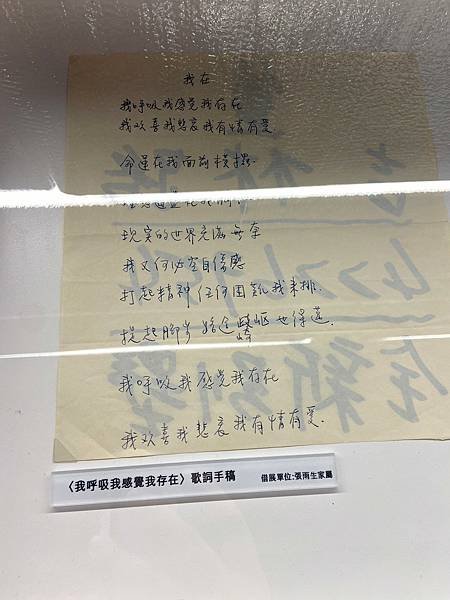 我在
我呼吸我感觉我存在
我欢喜我悲哀我有情有爱
命運在我面前横擺.
現实的世界充滿無奈
我又何必空自傷感
打起精神任何困難我来排.
提起脚步路途崎岖也得邁.
我呼吸我感觉我存在
我欢喜我悲哀我有情有爱.
〈我呼吸我感覺我存在〉歌詞手稿 借展單位:張雨生家屬